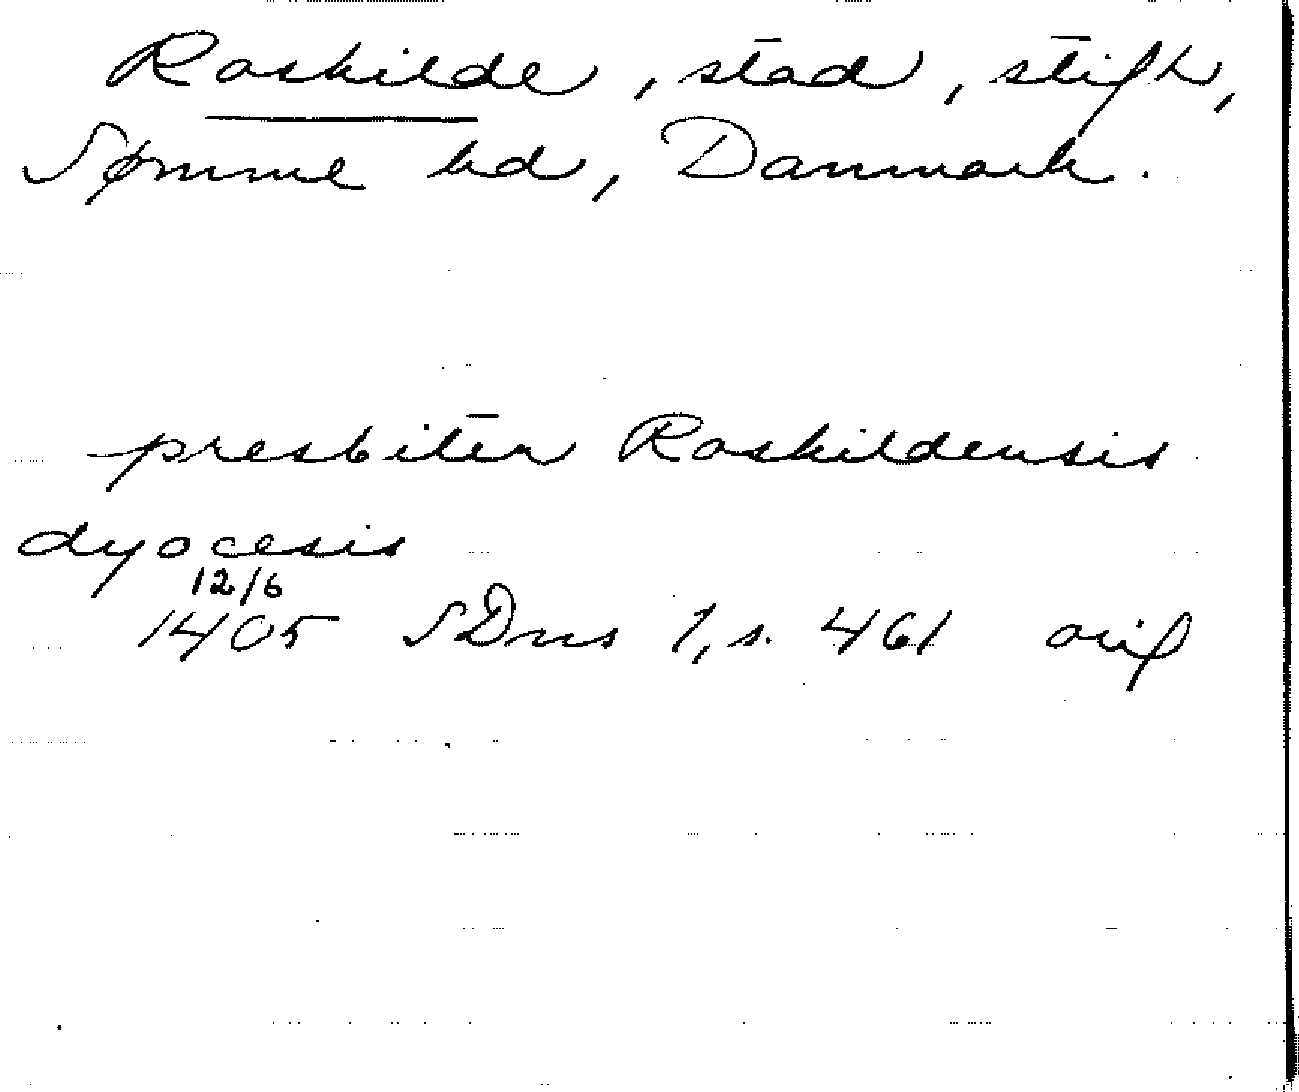 Roskilde, stad, stift,
Sømme hd, Danmark.
presbiter Roskildensis
dyocesis
12/6
1405 SDns 1, s. 461 orig